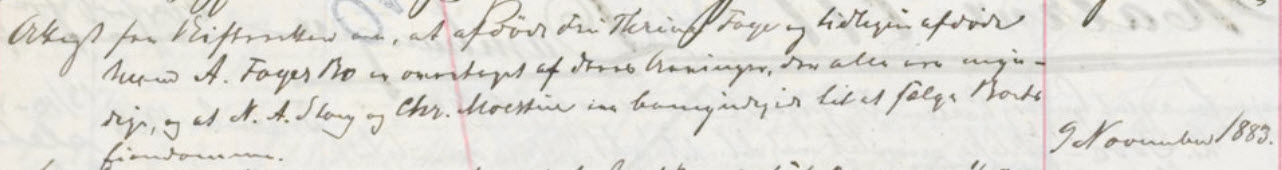 Attest fra Skifteretten om, at afdøde Fru Therese Faye og tidligere afdøde
Mand A. Fayes Bo er overtaget af deres Arvinger, der alle ere myn-
dige, og at N. A. og Chr. er bemyndigede til at sælge Boets
Eiendomme.
9 November 1883.